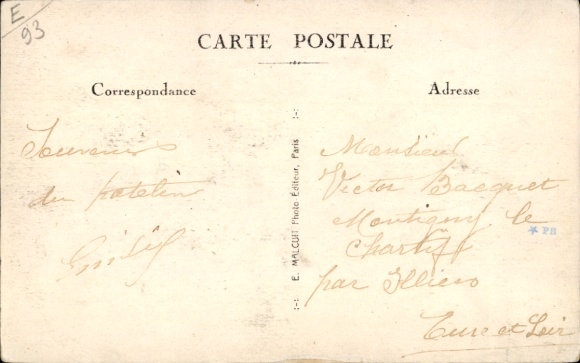 E
93
CARTE POSTALE
Correspondance
Souvenirs
du patelin
E. MALCUIT Photo-Éditeur, Paris
Adresse
Monsieur
Victor Bacquet
Montigny le
Chartif
par Illiers
Eure et Loir
★ PB